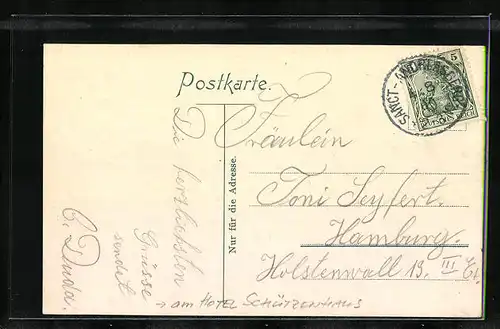 Postkarte.
Die herzlichsten
Grüsse
sendet
C. Duda.
Nur für die Adresse.
Fräulein
Toni Seyfert.
Hamburg.
Holstenwall 13. III Et.
→ am HOTEL SCHÜTZENHAUS
SANCT-ANDREASBERG
5
DEUTSCHES REICH